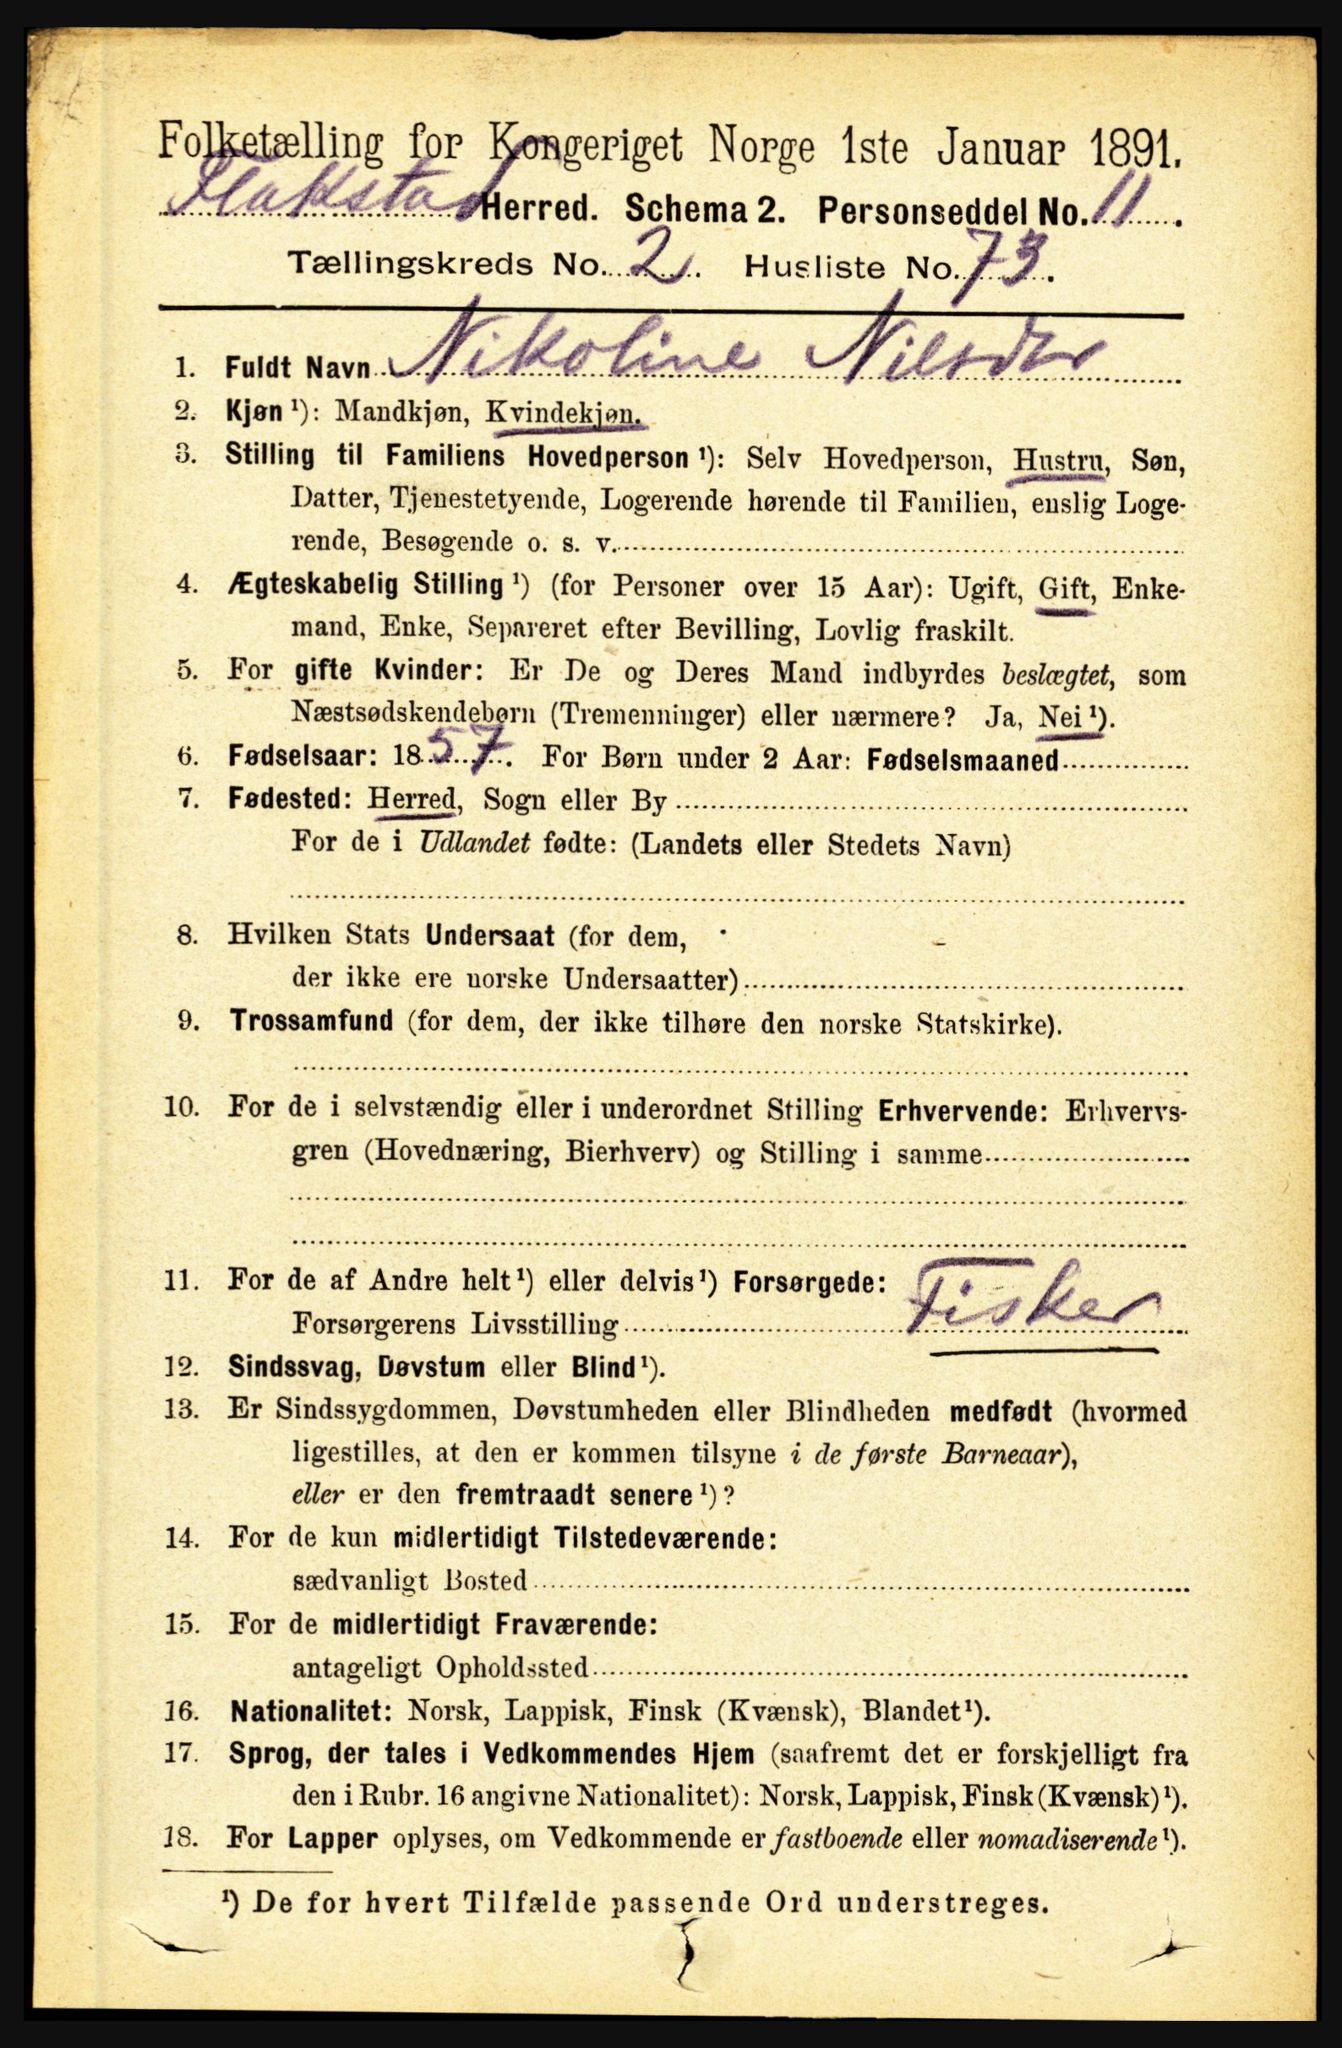 Folketælling for Kongeriget Norge 1ste Januar 1891.
Flakstad Herred. Schema 2. Personseddel No. 11.
Tællingskreds No. 2. Husliste No. 73.
1. Fuldt Navn Nikoline Nilsdtr
2. Kjøn ¹): Mandkjøn, Kvindekjøn.
3. Stilling til Familiens Hovedperson ¹): Selv Hovedperson, Hustru, Søn,
Datter, Tjenestetyende, Logerende hørende til Familien, enslig Loge-
rende, Besøgende o. s. v.
4. Ægteskabelig Stilling ¹) (for Personer over 15 Aar): Ugift, Gift, Enke-
mand, Enke, Separeret efter Bevilling, Lovlig fraskilt.
5. For gifte Kvinder: Er De og Deres Mand indbyrdes beslægtet, som
Næstsødskendebørn (Tremenninger) eller nærmere? Ja, Nei ¹).
6. Fødselsaar: 1857. For Børn under 2 Aar: Fødselsmaaned
7. Fødested: Herred, Sogn eller By
For de i Udlandet fødte: (Landets eller Stedets Navn)
8. Hvilken Stats Undersaat (for dem,
der ikke ere norske Undersaatter)
9. Trossamfund (for dem, der ikke tilhøre den norske Statskirke).
10. For de i selvstændig eller i underordnet Stilling Erhvervende: Erhvervs-
gren (Hovednæring, Bierhverv) og Stilling i samme
11. For de af Andre helt ¹) eller delvis ¹) Forsørgede:
Forsørgerens Livsstilling Fisker
12. Sindssvag, Døvstum eller Blind ¹).
13. Er Sindssygdommen, Døvstumheden eller Blindheden medfødt (hvormed
ligestilles, at den er kommen tilsyne i de første Barneaar),
eller er den fremtraadt senere ¹)?
14. For de kun midlertidigt Tilstedeværende:
sædvanligt Bosted
15. For de midlertidigt Fraværende:
antageligt Opholdssted
16. Nationalitet: Norsk, Lappisk, Finsk (Kvænsk), Blandet ¹).
17. Sprog, der tales i Vedkommendes Hjem (saafremt det er forskjelligt fra
den i Rubr. 16 angivne Nationalitet): Norsk, Lappisk, Finsk (Kvænsk) ¹).
18. For Lapper oplyses, om Vedkommende er fastboende eller nomadiserende ¹).
¹) De for hvert Tilfælde passende Ord understreges.